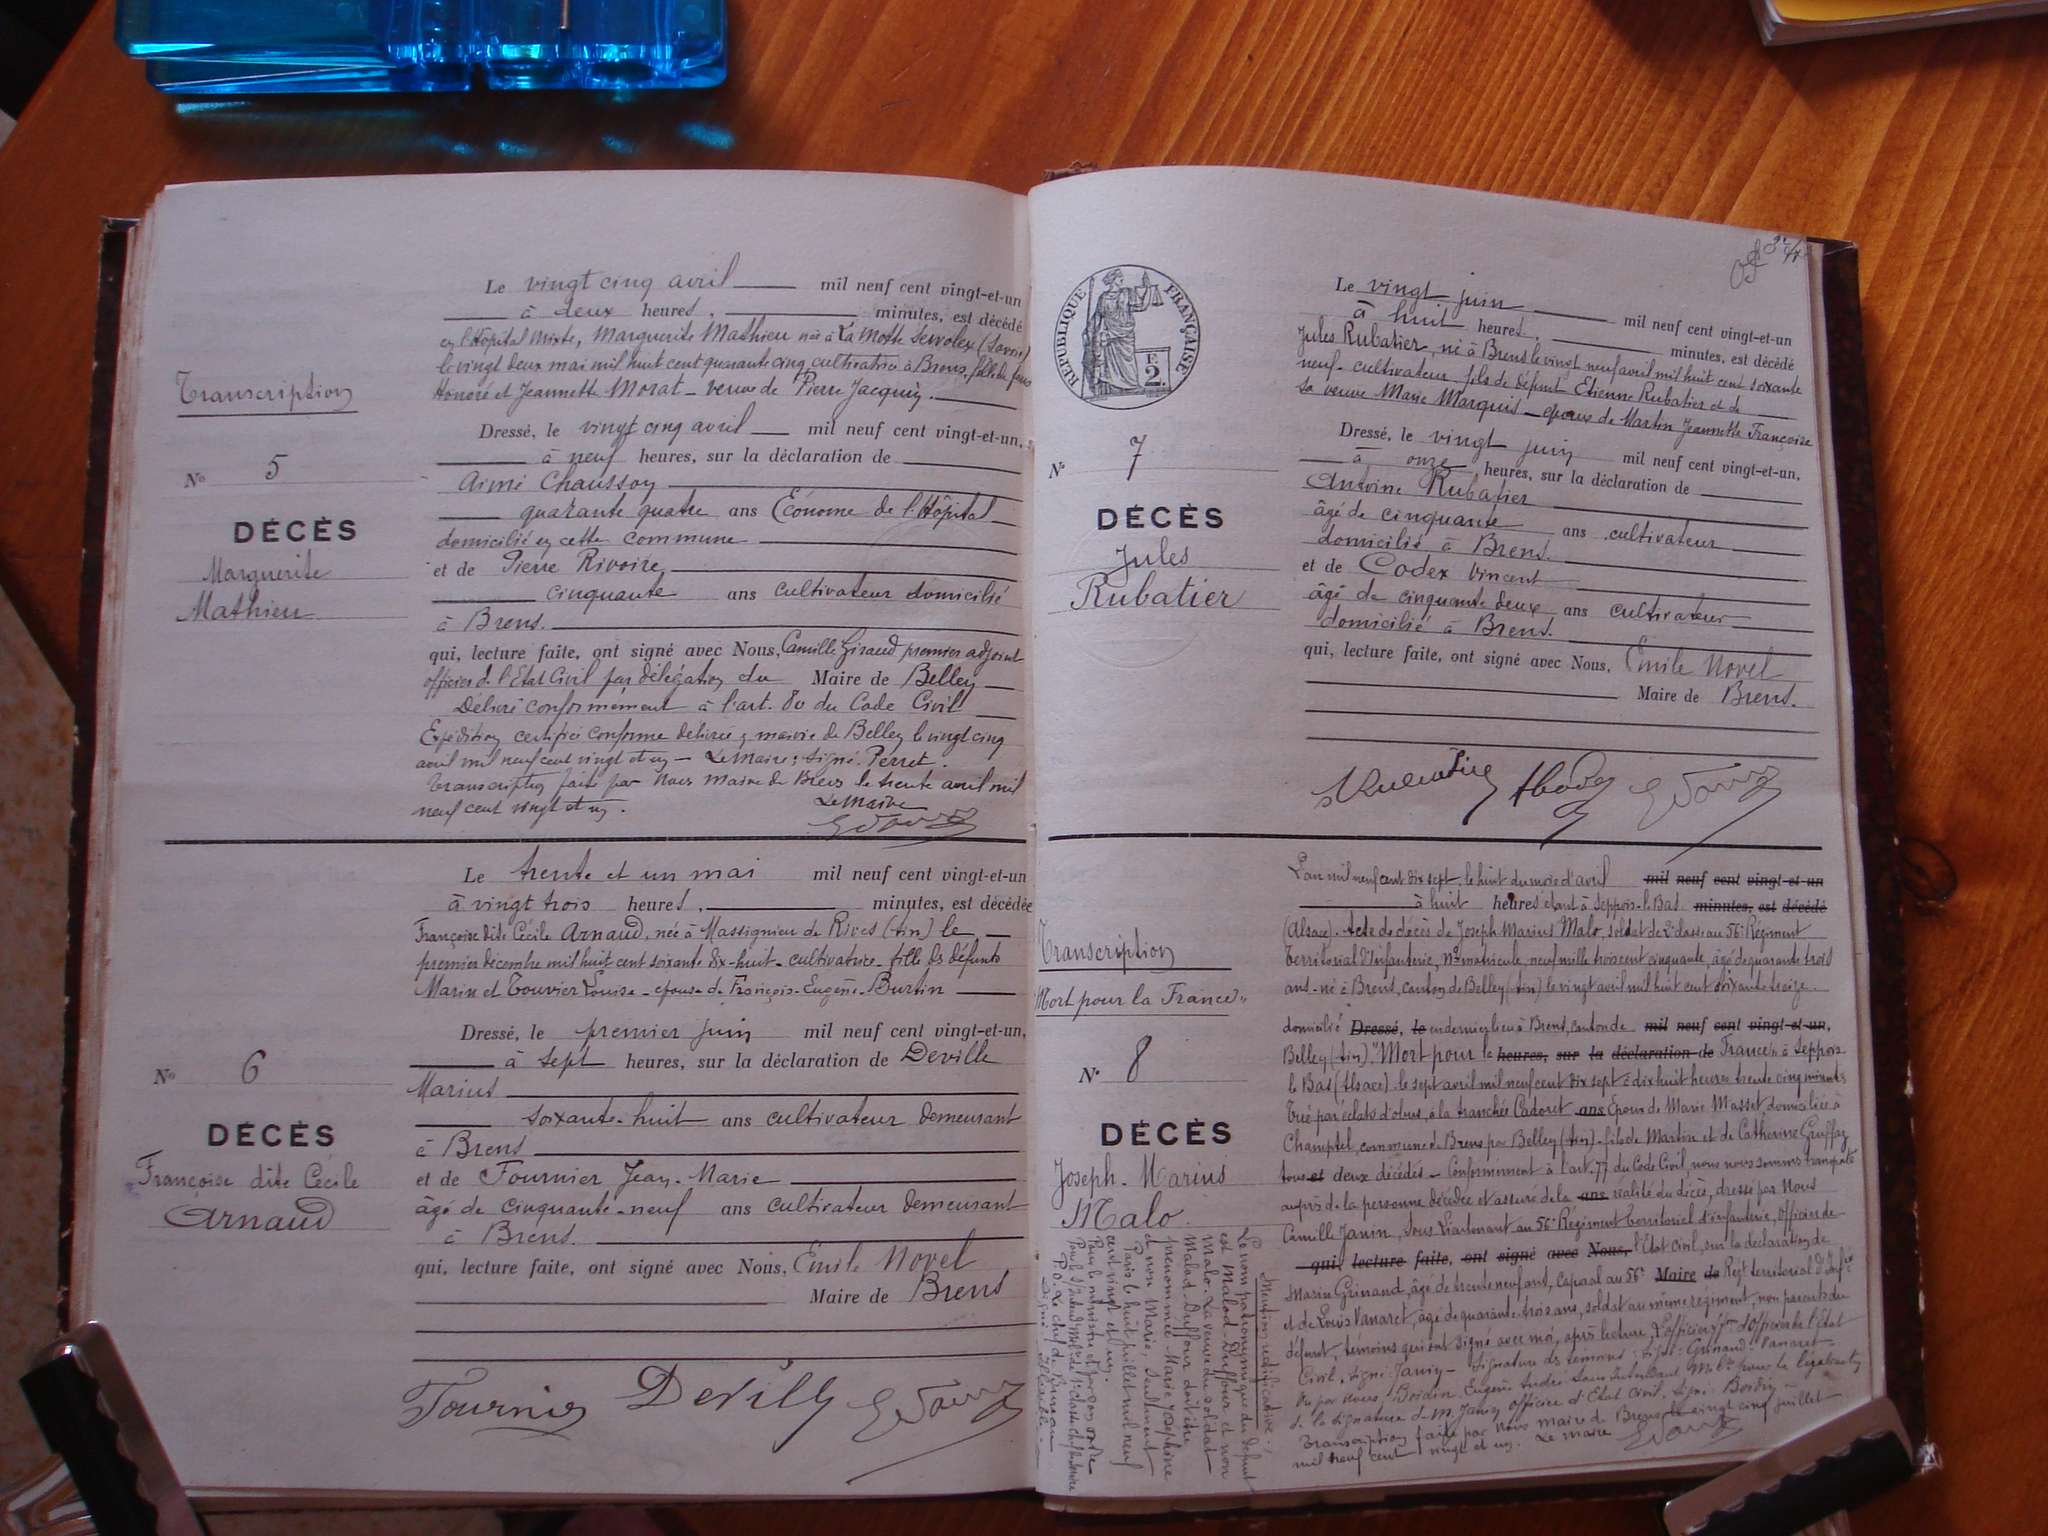 Transcription
Nº 5
DÉCÈS
Marguerite
Mathieu
Le vingt cinq avril mil neuf cent vingt-et-un
à deux heures, minutes, est décédé
en l'Hôpital Mixte, Marguerite Mathieu née à La Motte Servolex (Savoie)
le vingt deux mai mil huit cent quarante cinq, cultivatrice à Brens, fille de
Honoré et Jeannette Morat - veuve de Pierre Jacquin.
Dressé, le vingt cinq avril mil neuf cent vingt-et-un,
à neuf heures, sur la déclaration de
Aimé Chausson
quarante quatre ans Économe de l'Hôpital
domicilié en cette commune
et de Pierre Rivoire
cinquante ans cultivateur domicilié
à Brens.
qui, lecture faite, ont signé avec Nous, Camille Giraud premier adjoint
officier de l'Etat Civil par délégation du Maire de Belley
Délivré conformément à l'art. 80 du Code Civil
Expédition certifiée conforme délivrée en mairie de Belley le vingt cinq
avril mil neuf cent vingt et un - Le Maire: signé: Perret.
Transcription faite par Nous maire de Brens le trente avril mil
neuf cent vingt et un. Le Maire
Nº 6
DÉCÈS
Françoise dite Cécile
Arnaud
Le trente et un mai mil neuf cent vingt-et-un
à vingt trois heures, minutes, est décédée
Françoise dite Cécile Arnaud, née à Massignieu de Rives (Ain) le
premier décembre mil huit cent soixante dix-huit - cultivatrice - fille des défunts
Marin et Touvier Louise - épouse de François-Eugène Burtin
Dressé, le premier juin mil neuf cent vingt-et-un,
à sept heures, sur la déclaration de Deville
Marius
soixante-huit ans cultivateur demeurant
à Brens
et de Fournier Jean-Marie
âgé de cinquante-neuf ans cultivateur demeurant
à Brens.
qui, lecture faite, ont signé avec Nous, Emile Novel
Maire de Brens
Fournier Deville
RÉPUBLIQUE FRANÇAISE
2.
Nº 7
DÉCÈS
Jules
Rubatier
Le vingt juin mil neuf cent vingt-et-un
à huit heures, minutes, est décédé
Jules Rubatier, né à Brens le vingt neuf avril mil huit cent soixante
neuf - cultivateur, fils de défunt Etienne Rubatier et de
sa veuve Marie Marquis - époux de Martin Jeannette Françoise
Dressé, le vingt juin mil neuf cent vingt-et-un,
à onze heures, sur la déclaration de
Antoine Rubatier
âgé de cinquante ans cultivateur
domicilié à Brens.
et de Codex Vincent
âgé de cinquante deux ans cultivateur
domicilié à Brens.
qui, lecture faite, ont signé avec Nous, Emile Novel
Maire de Brens.
Transcription
"Mort pour la France"
Nº 8
DÉCÈS
Joseph-Marius
Malo
L'an mil neuf cent dix sept, le huit du mois d'avril mil neuf cent vingt-et-un
à huit heures étant à Seppois-le-Bas minutes, est décédé
(Alsace). Acte de décès de Joseph Marius Malo, soldat de 2e classe au 56e Régiment
Territorial d'Infanterie, Nº matricule, neuf mille trois cent cinquante, âgé de quarante trois
ans - né à Brens, canton de Belley (Ain) le vingt avril mil huit cent soixante treize.
domicilié Dressé, le en dernier lieu à Brens, canton de mil neuf cent vingt-et-un,
Belley (Ain). "Mort pour la heures, sur la déclaration de France" à Seppois
le Bas (Alsace) le sept avril mil neuf cent dix sept à dix huit heures trente cinq minutes
Tué par éclats d'obus, à la tranchée Cadoret ans Epoux de Marie Masset, domiciliée à
Champtel, commune de Brens par Belley (Ain) - fils de Martin et de Catherine
tous et deux décédés - Conformément à l'art. 77 du Code Civil, nous nous sommes transporté
auprès de la personne décédée et assuré de la ans réalité du décès, dressé par Nous
Camille Janin, Sous Lieutenant au 56e Régiment Territorial d'infanterie, Officier de
qui, lecture faite, ont signé avec Nous, l'Etat Civil, sur la déclaration de
Marin Grinand, âgé de trente neuf ans, caporal au 56e Maire de Régt territorial d'Infie
et de Louis Vanaret, âgé de quarante-trois ans, soldat au même régiment, non parents du
défunt, témoins qui ont signé avec moi, après lecture. L'officier de l'Etat
Civil, signé: Janin - Signature des témoins: signé: Grinand - Vanaret -
Vu par nous, Boidin, Eugène André Sous Intendant Mre pour la légalisation
de la signature de M. Janin officier d'Etat Civil. signé: Boidin -
Transcription faite par Nous maire de Brens le vingt cinq juillet
mil neuf cent vingt et un. Le Maire
Mention rectificative:
Le nom patronymique du défunt
est Malod-Duffour et non
Malo. La veuve du soldat
Malod-Duffour doit être
prénommée Marie Josephine
et non Marie, seulement
Paris le huit juillet mil neuf
cent vingt et un.
Pour le ministre et par son ordre
P.O. Le chef de Bureau